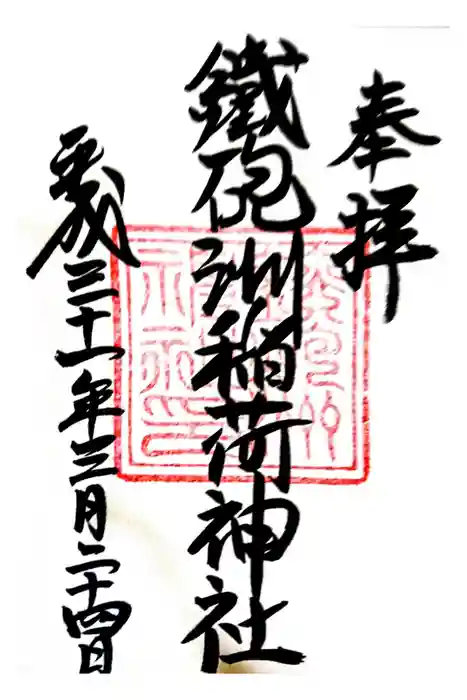 奉拝
鐵砲洲稲荷神社
平成三十一年三月二十四日